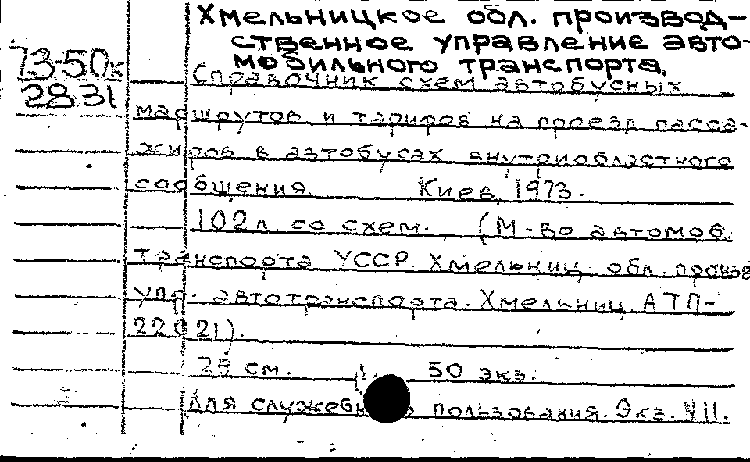 Хмельницкое обл. производ-
ственное управление авто-
мобильного транспорта.
73-50к
2831
Справочник схем автобусных
маршрутов и тарифов на проезд пасса-
жиров в автобусах внутриобластного
сообщения. Киев, 1973.
102 л со схем. (М-во автомоб.
транспорта УССР. Хмельниц. обл. произв
упр. автотранспорта. Хмельниц. АТП-
22021).
25 см. 50 экз.
Для служебного пользования. Экз. №11.